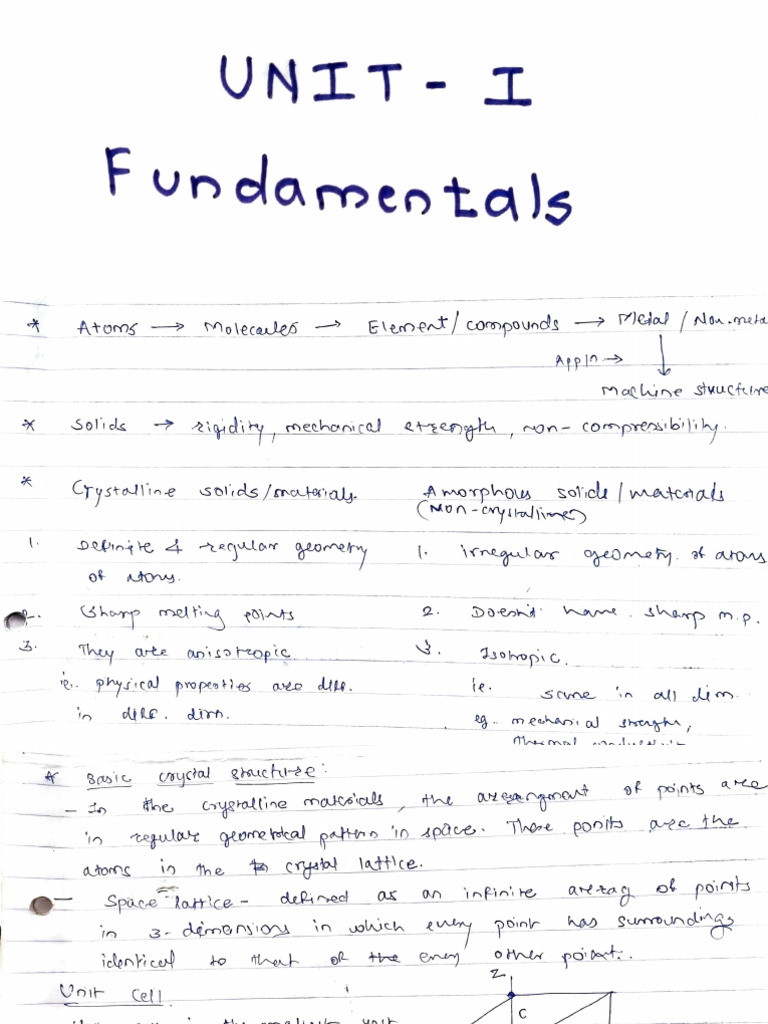 UNIT - I
Fundamentals
* Atoms → Molecules → Element/compounds → Metal / Non-meta
Appln →
Machine structure
* Solids → rigidity, mechanical strength, non-compressibility.
* Crystalline solids/materials. Amorphous solids/materials
(Non-crystalline)
1. Definite & regular geometry 1. irregular geometry of atoms
of atoms.
2. Sharp melting points 2. Doesn't have sharp m.p.
3. They are anisotropic 3. Isotropic.
ie. physical properties are diff. ie. same in all dirn.
in diff. dirn. eg. mechanical strength,
Thermal
* Basic crystal structure:
- In the crystalline materials, the arrangment of points are
in regular geometrical pattern in space. These points are the
atoms in the crystal lattice.
- Space lattice - defined as an infinite array of points
in 3-dimensions in which every point has surroundings
identical to that of the every other point.
Z
Unit Cell
C